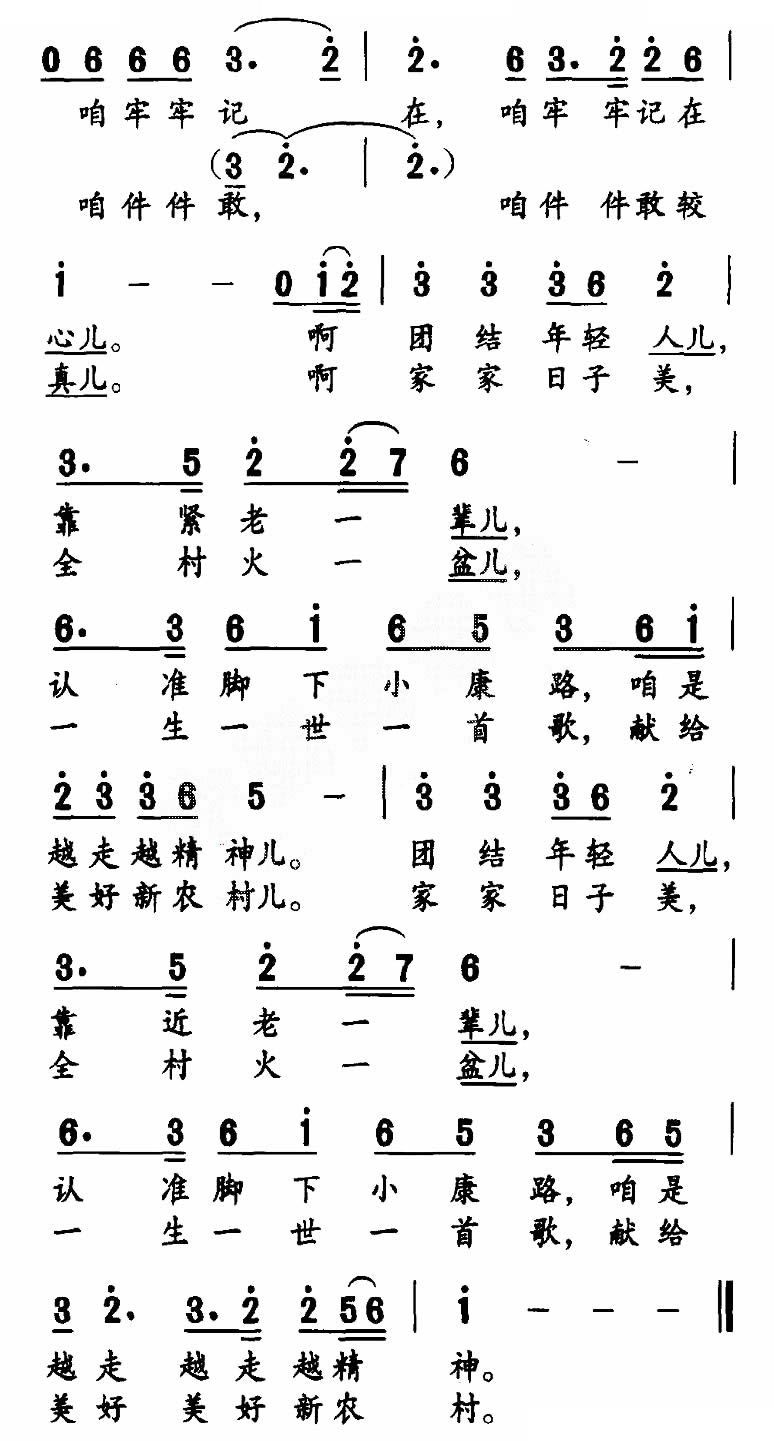 0 6 6 6 3. 2 | 2. 6 3. 2 2 6 |
咱牢牢记 在, 咱牢 牢记在
(3 2. | 2.)
咱件件敢, 咱件 件敢较
1 - - 0 1 2 | 3 3 3 6 2 |
心儿。 啊 团结年轻人儿,
真儿。 啊 家家日子美,
3. 5 2 2 7 6 - |
靠紧老一辈儿,
全村火一盆儿,
6. 3 6 1 6 5 3 6 1 |
认准脚下小康路, 咱是
一生一世一首歌, 献给
2 3 3 6 5 - | 3 3 3 6 2 |
越走越精神儿。 团结年轻人儿,
美好新农村儿。 家家日子美,
3. 5 2 2 7 6 - |
靠近老一辈儿,
全村火一盆儿,
6. 3 6 1 6 5 3 6 5 |
认准脚下小康路, 咱是
一生一世一首歌, 献给
3 2. 3. 2 2 5 6 | 1 - - - ‖
越走 越走越精 神。
美好 美好新农 村。